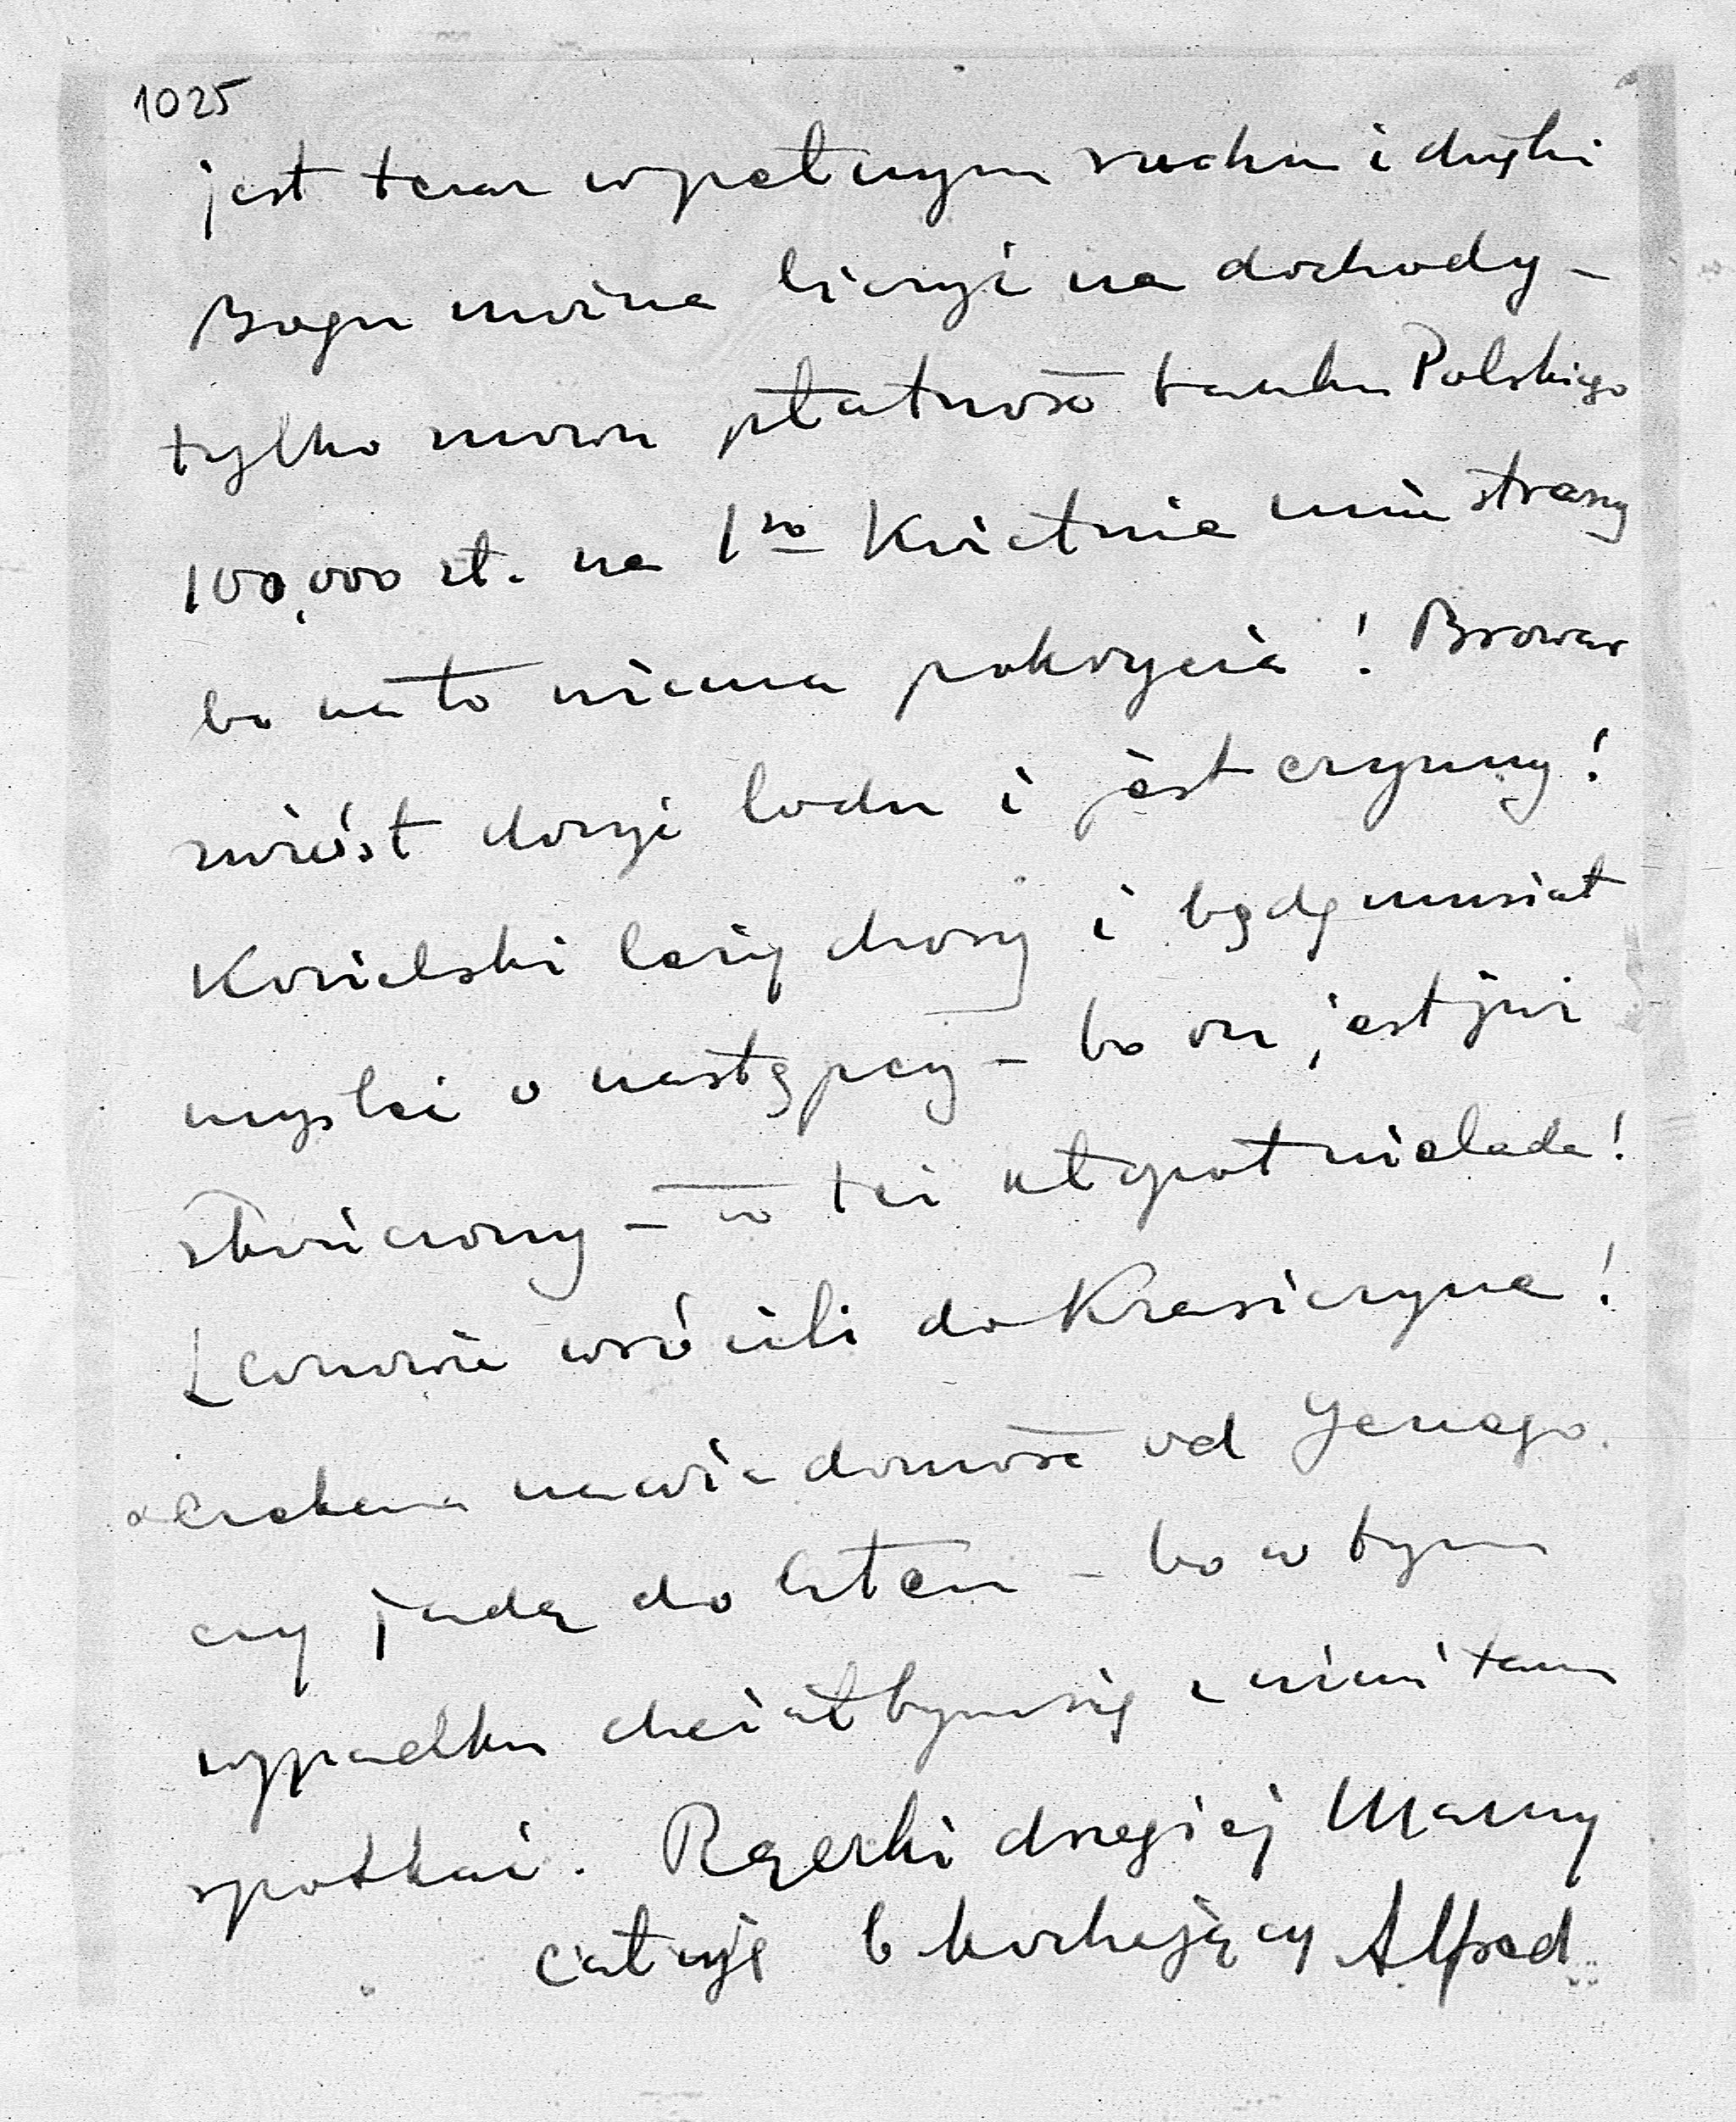 1025
jest teraz w pełnym ruchu i dzięki
Bogu można liczyć na dochody –
tylko znowu płatność banku Polskiego
100,000 zł. na 1go Kwietnia mnie straszy
bo na to niema pokrycia! Browar
zwiózł dosyć lodu i jest czynny!
Kozielski leży chory i będę musiał
myśleć o następcy – bo on jest już
skończony – w tem kłopot nielada!
Leonowie wrócili do Krasiczyna!
Czekam na wiadomość od Jerzego
czy jadą do Aten – bo w tym
wypadku chciałbym się z nimi tam
spotkać. Rączki drogiej Mamy
całuję b kochający Alfred